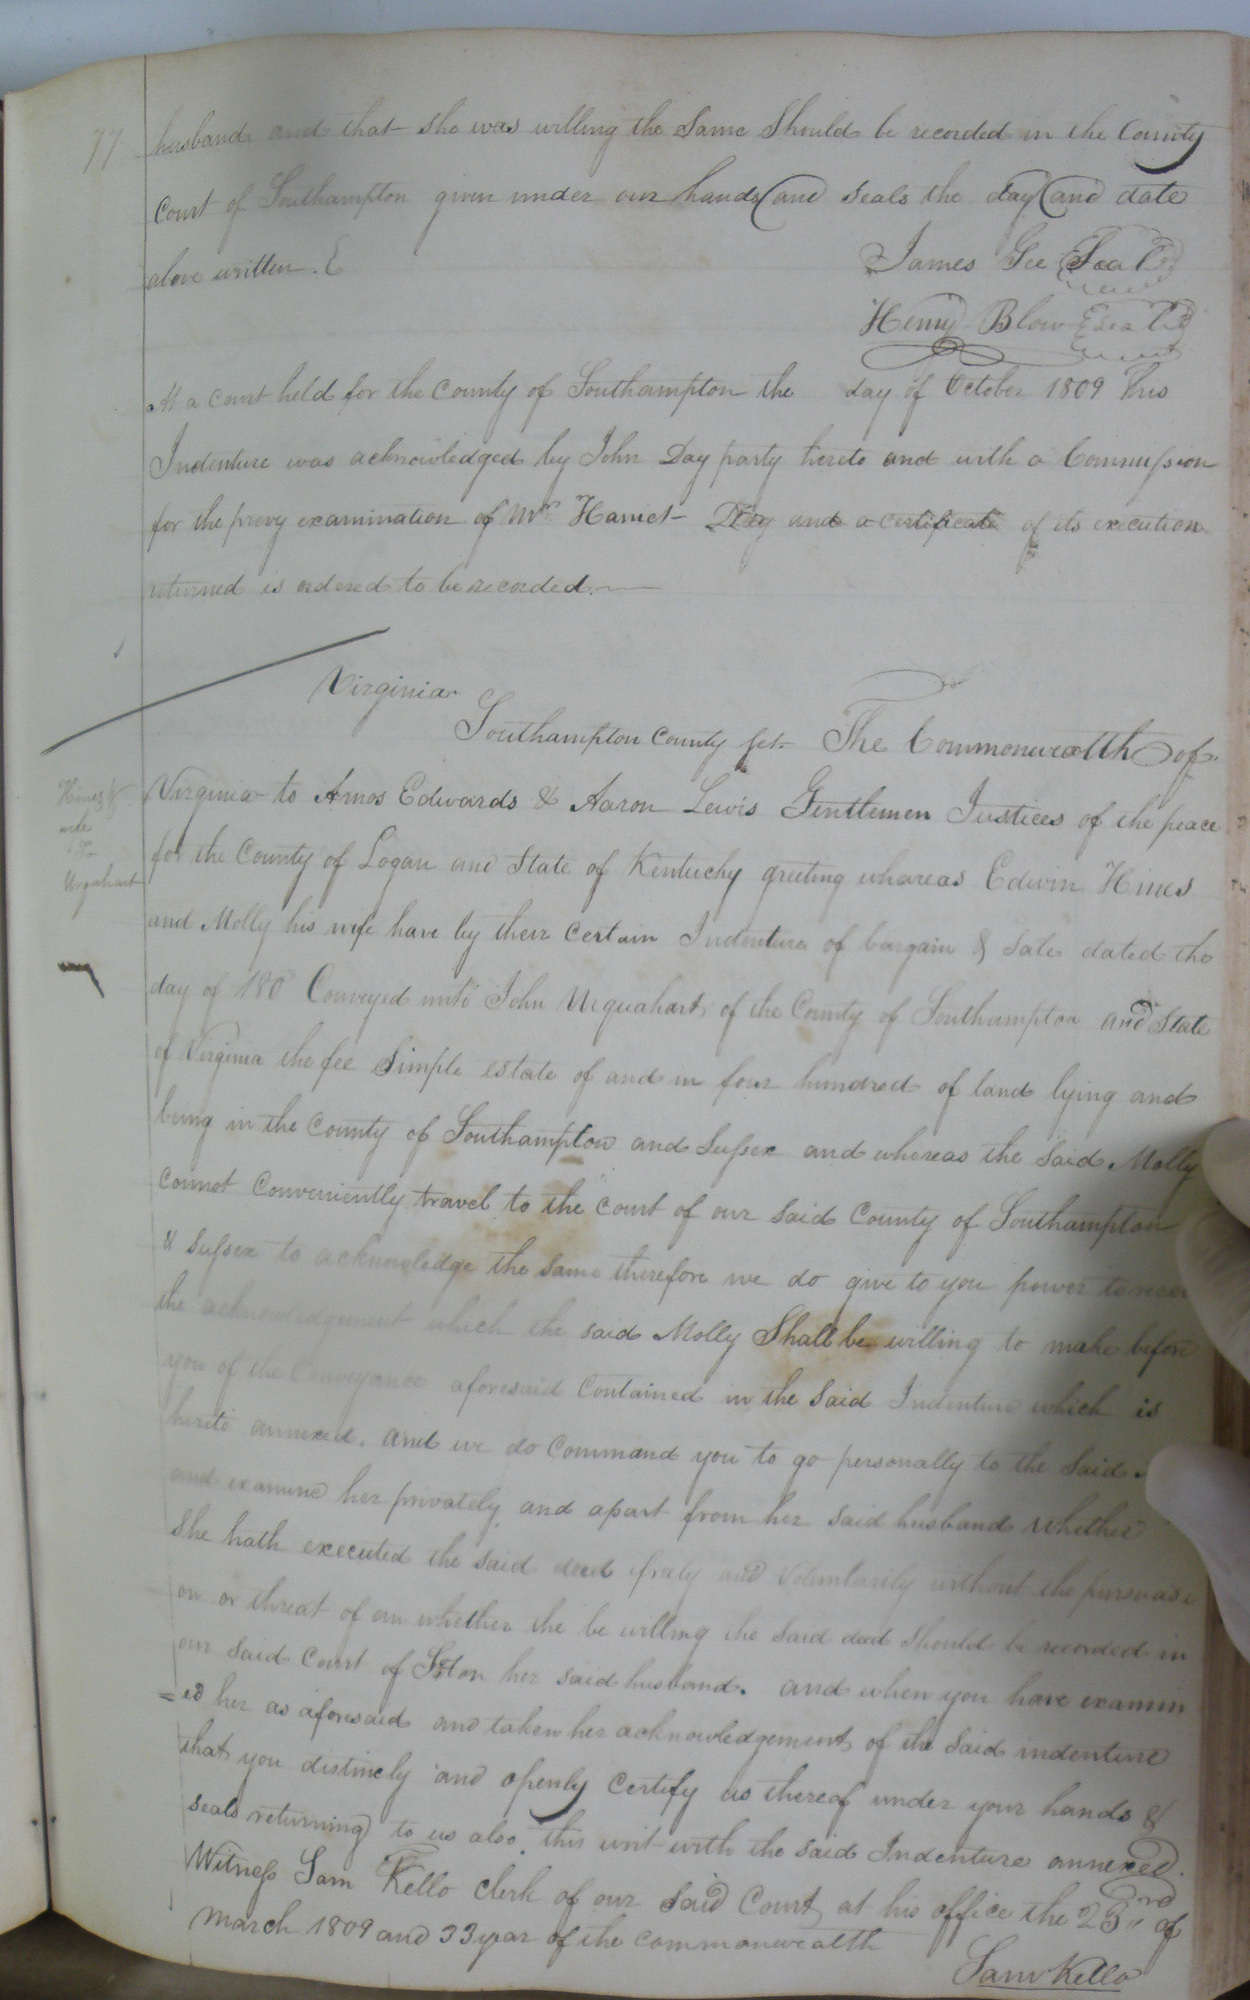 77
husband and that she was willing the Same Should be recorded in the County
Court of Southampton given under our hands and seals the day and date
above written.
James Gee Seal
Henry Blow Seal
At a court held for the County of Southampton the day of October 1809 This
Indenture was acknowledged by John Day party hereto and with a Commission
for the privy examination of Mrs Harriet Day and a certificate of its execution
returned is ordered to be recorded.
Virginia
Southampton County sct The Commonwealth of
Hines &
wife
To
Urquhart
Virginia to Amos Edwards & Aaron Lewis Gentlemen Justices of the peace
for the County of Logan and State of Kentucky greeting whareas Edwin Hines
and Molly his wife have by their Certain Indenture of bargain & Sale dated the
day of 180 Conveyed unto John Urquahart of the County of Southampton and State
of Virginia the fee Simple estate of and in four hundred of land lying and
being in the County of Southampton and Sussex and whereas the Said Molly
connot Conveniently travel to the court of our Said County of Southampton
& Sussex to acknowledge the Same therefore we do give to you power to
the acknowledgement which the said Molly Shall be willing to make before
you of the Conveyance aforesaid Contained in the Said Indenture which is
hereto annexed. and we do Command you to go personally to the Said
and examine her privately and apart from her said husband whether
She hath executed the said deed freely and Voluntarily without the persuasi
on or threat of an whether the be willing the Said deed Should be recorded in
our Said Court of Ston her said husband. and when you have examin
=ed her as aforesaid and taken her acknowledgement of the Said indenture
that you distincly and openly Certify us thereof under your hands &
seals returning to us also this writ with the said Indenture annexed.
Witness Sam Kello clerk of our Said Court at his office the 23rd of
March 1809 and 33 year of the commonwealth
Sam Kello